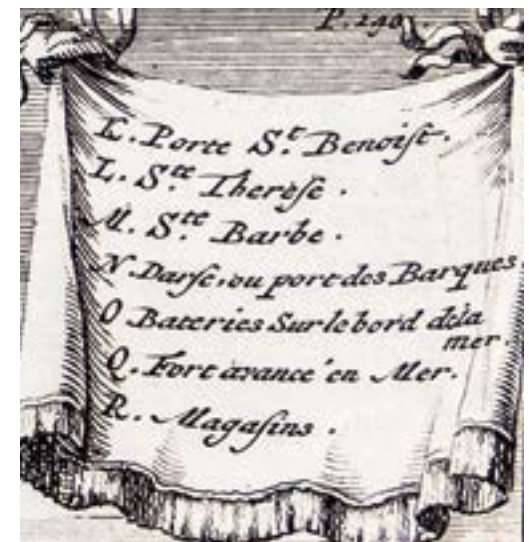 P. 190.
K. Porte S.t Benoiſt.
L. S.te Thereſe.
M. S.te Barbe.
N. Darſe, ou port des Barques.
O Bateries Sur le bord de la
mer.
Q. Fort avancé en Mer.
R. Magaſins.